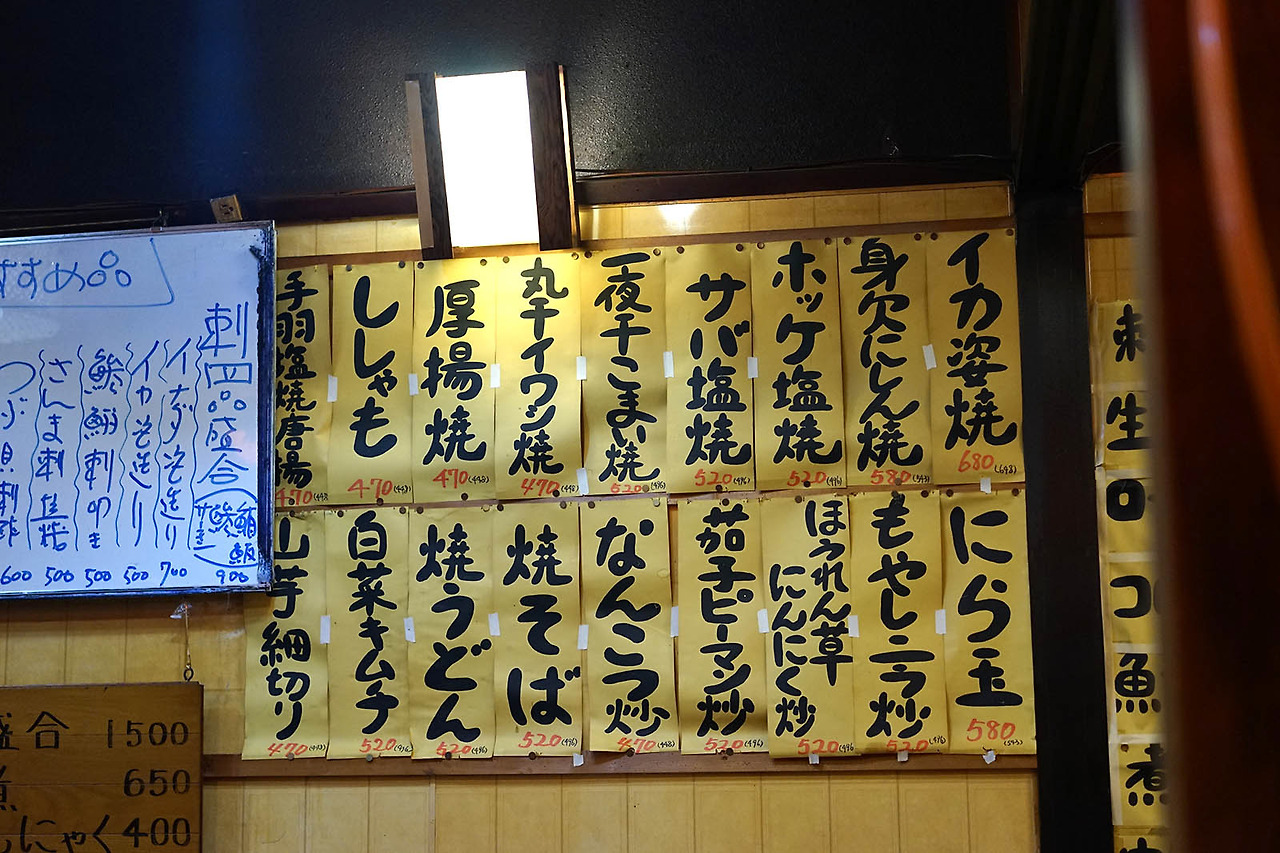 イカ姿焼
680(648)
身欠にしん焼
580(543)
ホッケ塩焼
520(496)
サバ塩焼
520(496)
一夜干こまい焼
520(496)
丸干イワシ焼
470(448)
厚揚焼
470(448)
ししゃも
470(448)
手羽塩焼唐揚
470(448)
にら玉
580(543)
もやしニラ炒
520(496)
ほうれん草
にんにく炒
520(496)
茄子ピーマン炒
520(496)
なんこう炒
470(448)
焼そば
520(496)
焼うどん
520(496)
白菜キムチ
520(496)
山芋細切り
470(448)
すすめ品
刺四品盛合
900
700
イカそぎ造り
500
500
さんま刺
500
つぶ貝刺
600
盛合 1500
煮 650
にゃく 400
刺
生
つ
魚
煮